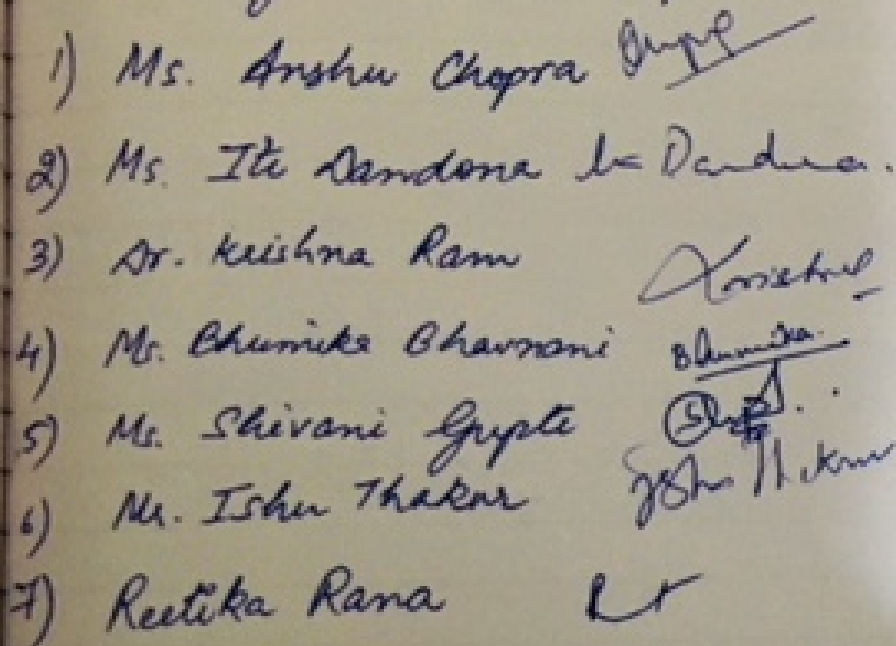 1) Ms. Anshu Chopra
2) Ms. Iti Dandona Dandona.
3) Dr. Krishna Ram Krishna
4) Ms. Bhumika Bhavnani Bhumika.
5) Ms. Shivani Gupta
6) Mr. Ishu Thakur Ishu Thakur
7) Reetika Rana